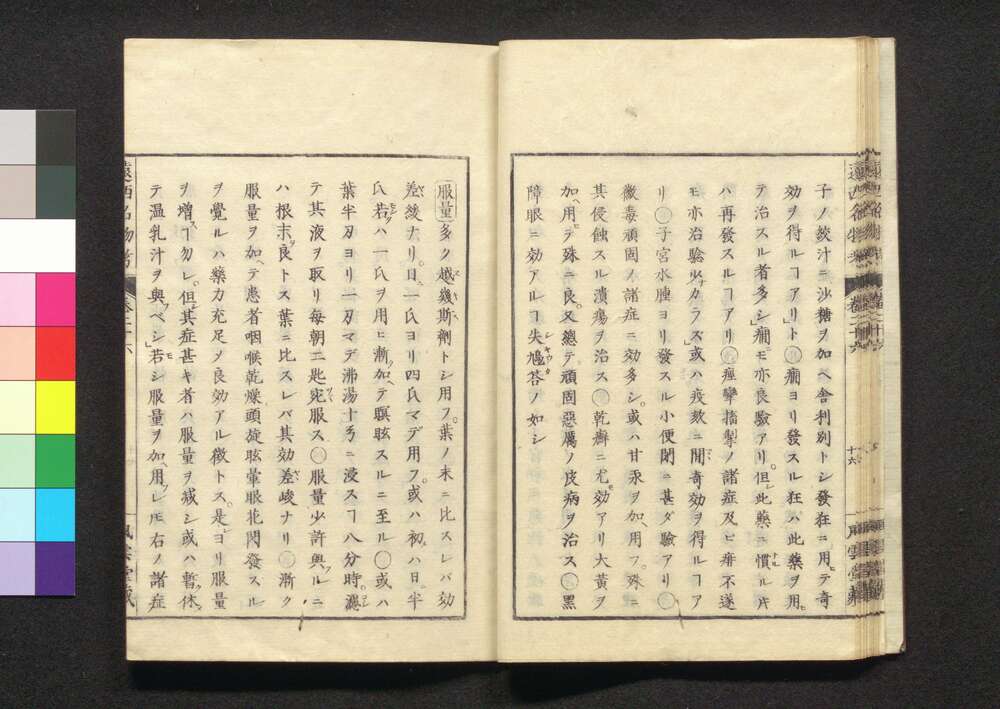 子ノ絞汁ニ沙糖ヲ加ヘ舎利別トシ發狂ニ用ヒテ奇
効ヲ得ルヿアリト○癇ヨリ發スル狂ハ此藥ヲ用ヒ
テ治スル者多シ癇モ亦良驗アリ但シ此藥ニ慣ルレ𪜈
ハ再發スルヿアリ○痙攣搐掣ノ諸症及ヒ痱不遂
モ亦治驗少カラズ或ハ疫欬ニ間奇効ヲ得ルヿア
リ○子宮水腫ヨリ發スル小便閉ニ甚ダ驗アリ○
黴毒頑固ノ諸症ニ効多シ或ハ甘汞ヲ加ヘ用フ殊ニ
其侵蝕スル潰瘍ヲ治ス○乾癬ニ尤効アリ大黄ヲ
加ヘ用テ殊ニ良又總テ頑固惡厲ノ皮病ヲ治ス○黑
障眼ニ効アルヿ失鳩答ノ如シ
遠西名物考 卷二十六 十六 風雲堂藏
服量 多ク越幾斯劑トシ用フ葉ノ末ニ比スレバ効
差緩ナリ日ニ一氏ヨリ四氏マデ用フ或ハ初ハ日ニ半
氏若ハ一氏ヲ用ヒ漸ク加ヘテ瞑眩スルニ至ル○或ハ
葉半刃ヨリ一刃マデ沸湯十ニ浸スヿ八分時濾シ
テ其液ヲ取リ毎朝二匙宛服ス○服量少許與フルニ
ハ根末良トス葉ニ比スレバ其効差峻ナリ○漸ク
服量ヲ加ヘテ患者咽喉乾燥頭旋眩暈眼花閃發スル
ヲ覺ルハ藥力充足メ良効アル徴トス是ヨリ服量
ヲ增ヿ勿レ但シ其症甚キ者ハ服量ヲ減シ或ハ暫ク休
テ温乳汁ヲ與フベシ若シ服量ヲ加用レ𪜈右ノ諸症
遠西名物考 卷二十六 風雲堂藏